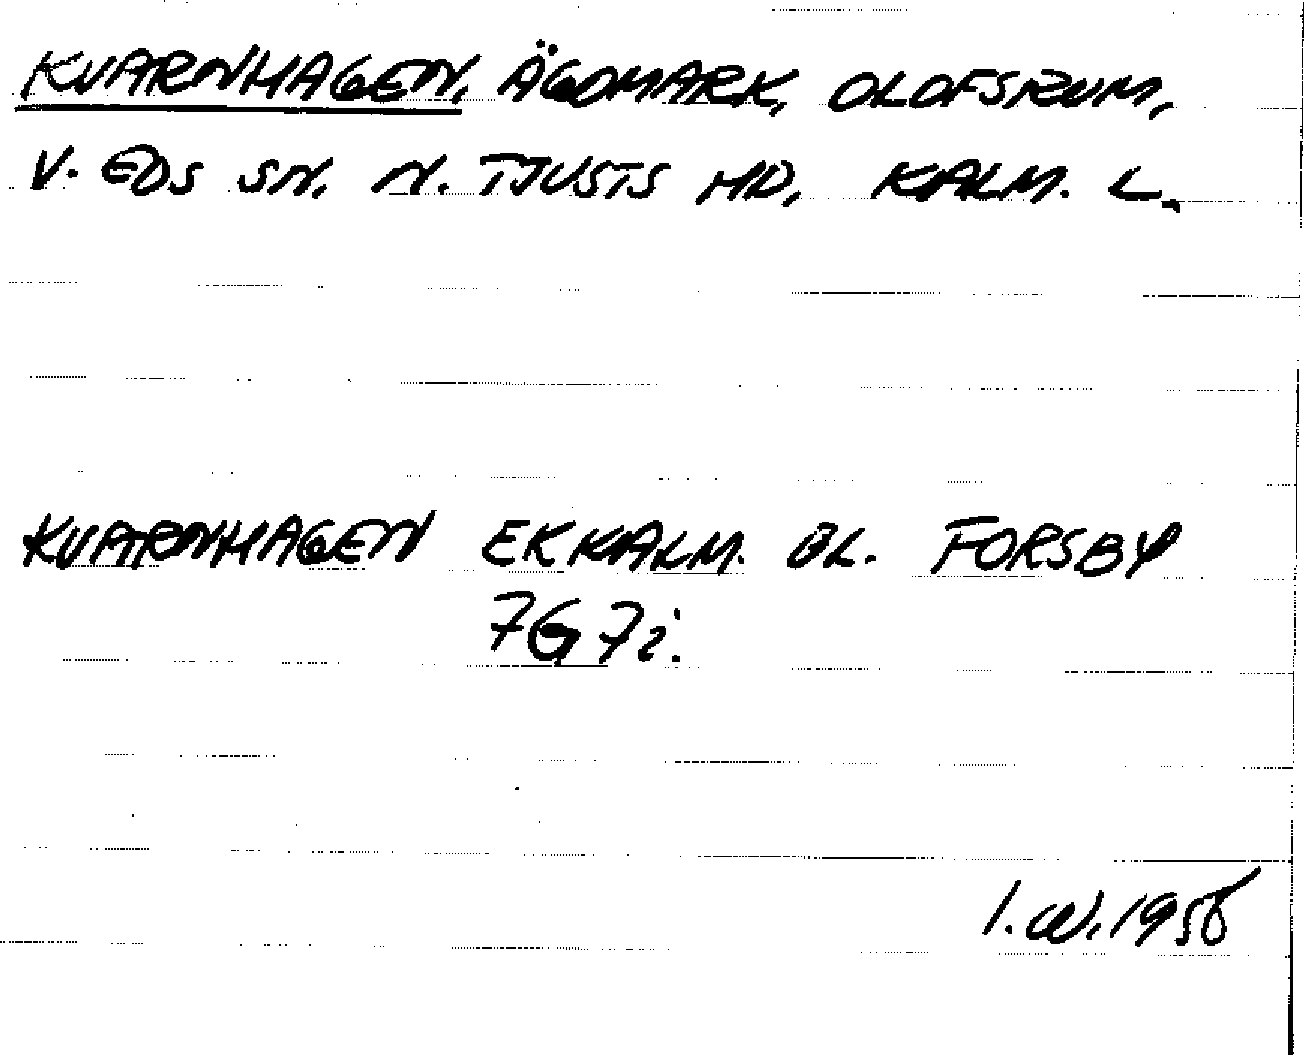 KVARNHAGEN, ÄGOMARK, OLOFSRUM,
V. EDS SN. N. TJUSTS HD, KALM. L.
KVARNHAGEN EK KALM. BL. FORSBY
7G 7i.
I.W.1958